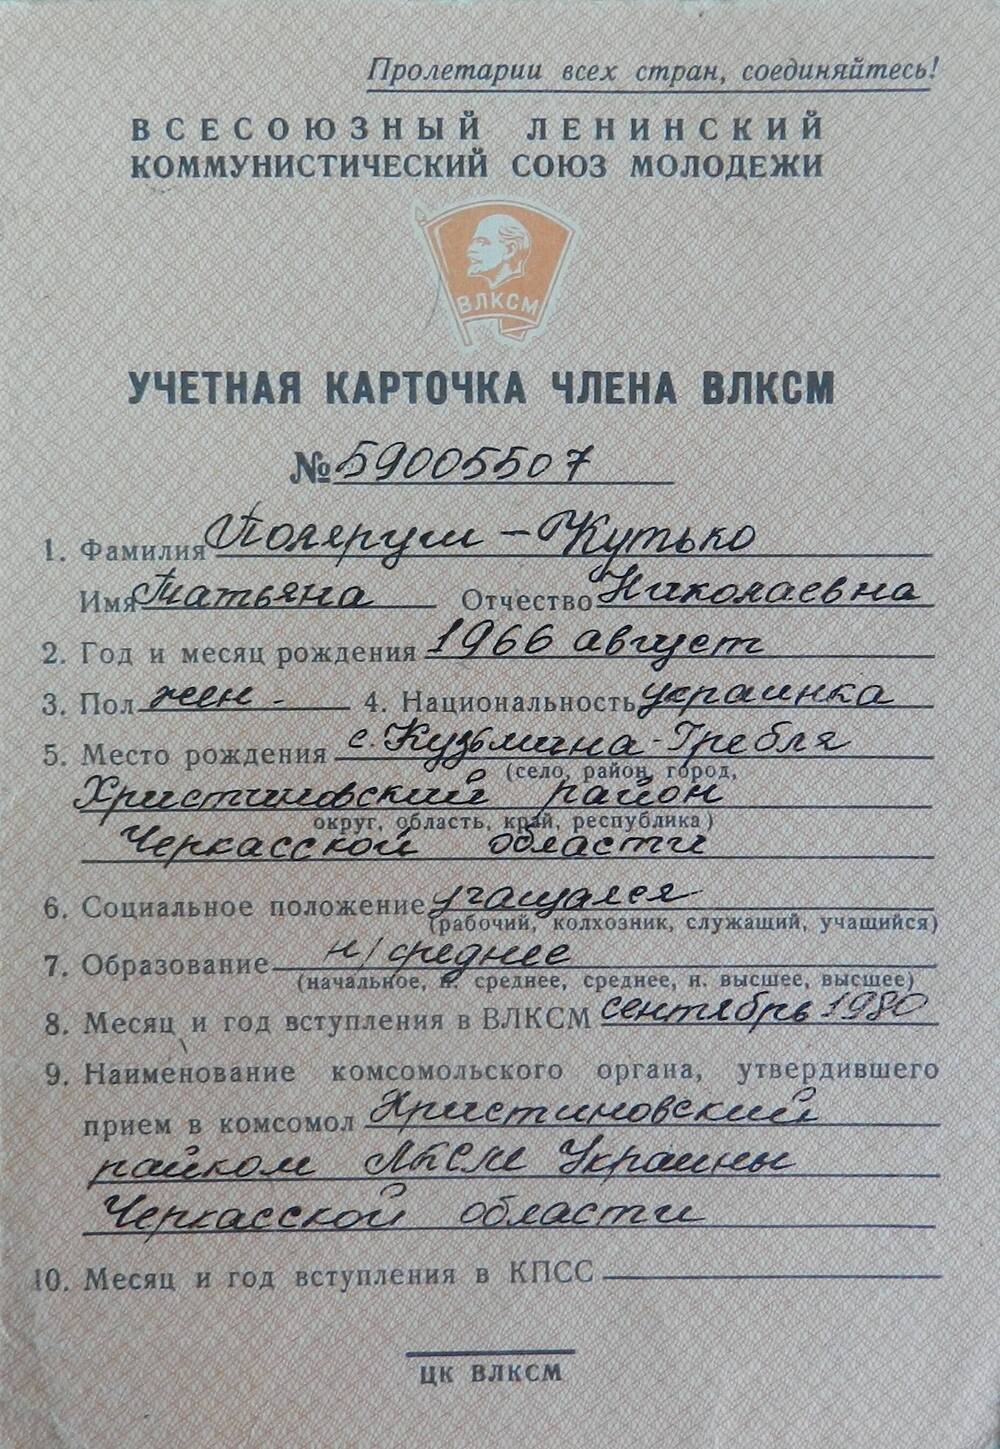 Пролетарии всех стран, соединяйтесь!
ВСЕСОЮЗНЫЙ ЛЕНИНСКИЙ
КОММУНИСТИЧЕСКИЙ СОЮЗ МОЛОДЕЖИ
ВЛКСМ
УЧЕТНАЯ КАРТОЧКА ЧЛЕНА ВЛКСМ
№ 59005507
1. Фамилия Поляруш-Кутько
Имя Татьяна Отчество Николаевна
2. Год и месяц рождения 1966 август
3. Пол жен - 4. Национальность украинка
5. Место рождения с. Кузьмина-Гребля
(село, район, город,
Христиновский район
округ, область, край, республика)
Черкасской области
6. Социальное положение учащаяся
(рабочий, колхозник, служащий, учащийся)
7. Образование н/среднее
(начальное, н. среднее, среднее, н. высшее, высшее)
8. Месяц и год вступления в ВЛКСМ сентябрь 1980
9. Наименование комсомольского органа, утвердившего
прием в комсомол Христиновский
райком ЛКСМ Украины
Черкасской области
10. Месяц и год вступления в КПСС
ЦК ВЛКСМ